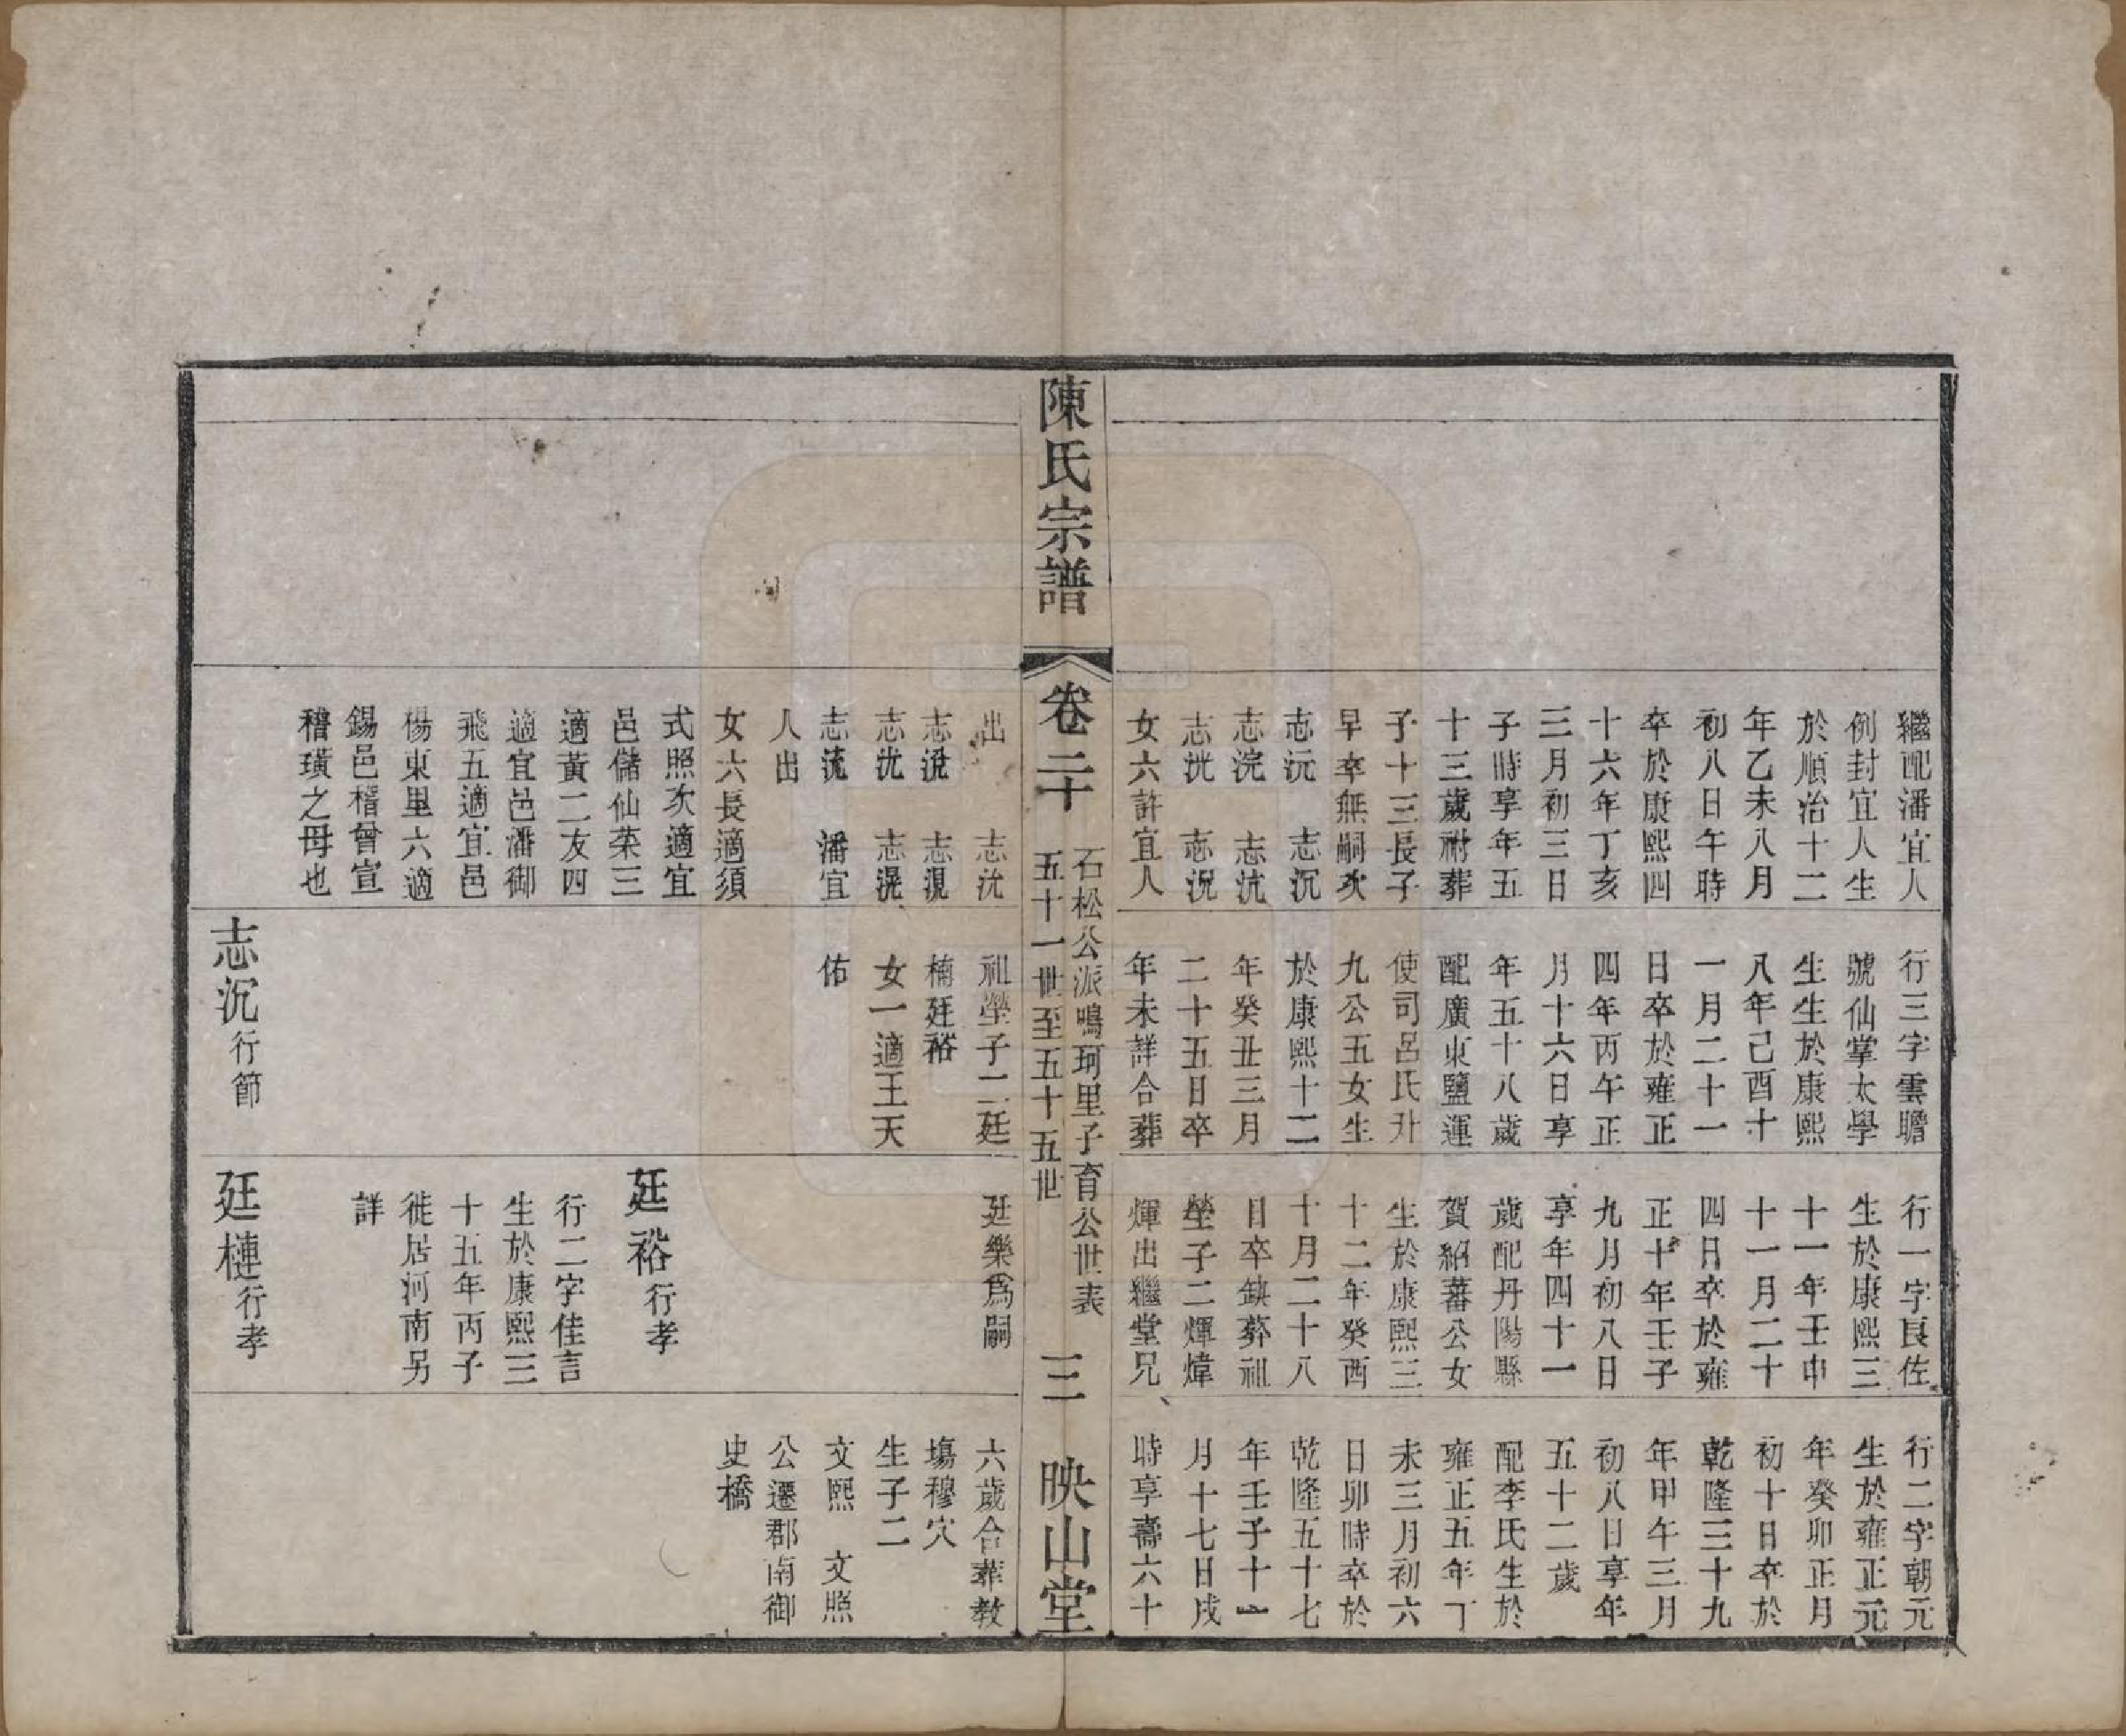 繼配潘宜人
例封宜人生
於順治十二
年乙未八月
初八日午時
卒於康熙四
十六年丁亥
三月初三日
子時享年五
十三歲祔葬
子十三長子
早卒無嗣次
志沅 志沉
志浣 志沆
志洸 志況
女六許宜人
行三字雲瞻
號仙掌太學
生生於康熙
八年己酉十
一月二十一
日卒於雍正
四年丙午正
月十六日享
年五十八歲
配廣東鹽運
使司呂氏升
九公五女生
於康熙十二
年癸丑三月
二十五日卒
年未詳合葬
行一字良佐
生於康熙三
十一年壬申
十一月二十
四日卒於雍
正十年壬子
九月初八日
享年四十一
歲配丹陽縣
賀紹蕃公女
生於康熙三
十二年癸酉
十月二十八
日卒缺葬祖
塋子二煇煒
煇出繼堂兄
行二字朝元
生於雍正元
年癸卯正月
初十日卒於
乾隆三十九
年甲午三月
初八日享年
五十二歲
配李氏生於
雍正五年丁
未三月初六
日卯時卒於
乾隆五十七
年壬子十一
月十七日戌
時享壽六十
陳氏宗譜
卷二十
石松公派鳴珂里子育公世表
五十一世至五十五世
三
映山堂
出 志沈
志涗 志混
志沋 志滉
志流 潘宜
人出
女六長適須
式照次適宜
邑儲仙菜三
適黃二友四
適宜邑潘御
飛五適宜邑
楊東里六適
錫邑稽曾宣
稽璜之母也
祖塋子二廷
楠廷裕
女一適王天
佑
志沉行節
廷樂爲嗣
廷裕行孝
行二字佳言
生於康熙三
十五年丙子
徙居河南另
詳
廷槤行孝
六歲合葬教
塲穆穴
生子二
文熙 文照
公遷郡南御
史橋